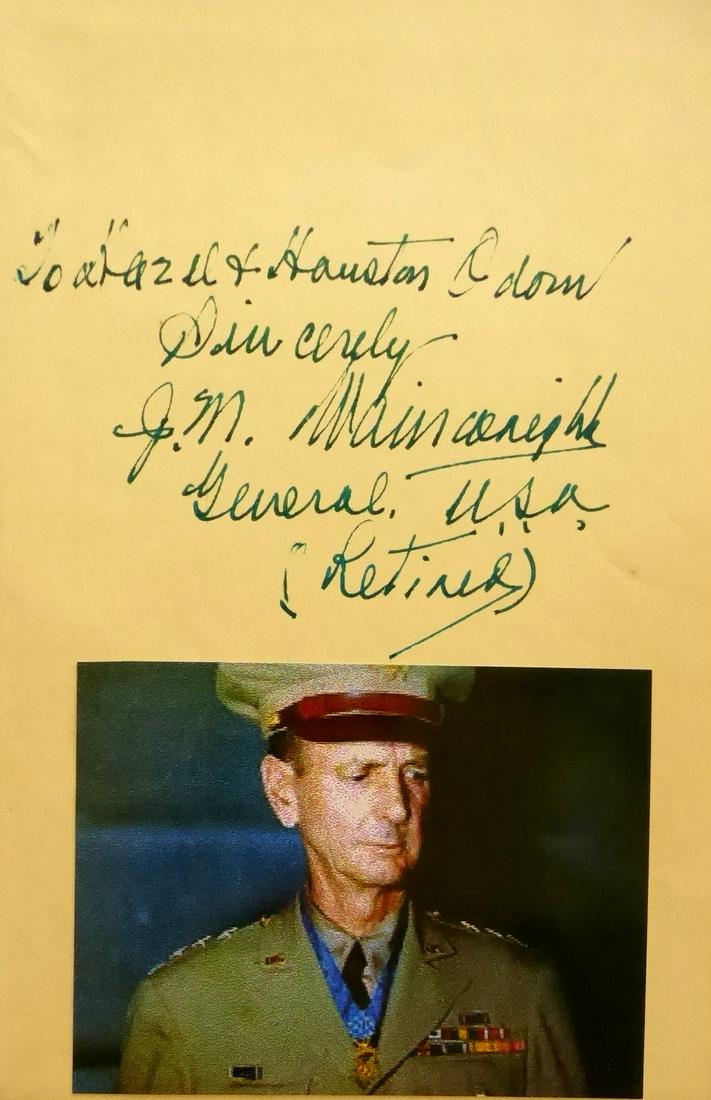 To Hazel & Houston Odom
Sincerely
J.M. Wainwright
General, U.S.A.
(Retired)